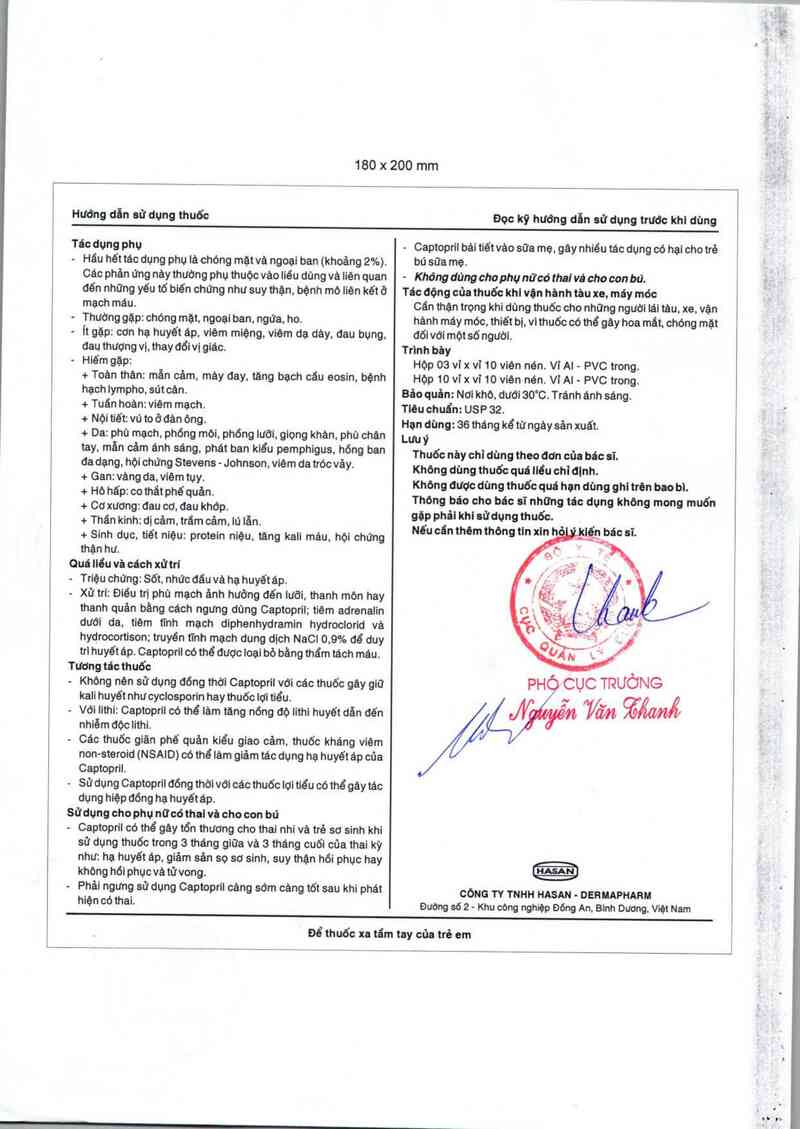 180 x 200 mm
Hướng dẫn sử dụng thuốc
Đọc kỹ hướng dẫn sử dụng trước khi dùng
Tác dụng phụ
- Hầu hết tác dụng phụ là chóng mặt và ngoại ban (khoảng 2%).
Các phản ứng này thường phụ thuộc vào liều dùng và liên quan
đến những yếu tố biến chứng như suy thận, bệnh mô liên kết ở
mạch máu.
- Thường gặp: chóng mặt, ngoại ban, ngứa, ho.
- Ít gặp: cơn hạ huyết áp, viêm miệng, viêm dạ dày, đau bụng,
đau thượng vị, thay đổi vị giác.
- Hiếm gặp:
+ Toàn thân: mẫn cảm, mày đay, tăng bạch cầu eosin, bệnh
hạch lympho, sút cân.
+ Tuần hoàn: viêm mạch.
+ Nội tiết: vú to ở đàn ông.
+ Da: phù mạch, phồng môi, phồng lưỡi, giọng khàn, phù chân
tay, mẫn cảm ánh sáng, phát ban kiểu pemphigus, hồng ban
đa dạng, hội chứng Stevens - Johnson, viêm da tróc vảy.
+ Gan: vàng da, viêm tụy.
+ Hô hấp: co thắt phế quản.
+ Cơ xương: đau cơ, đau khớp.
+ Thần kinh: dị cảm, trầm cảm, lú lẫn.
+ Sinh dục, tiết niệu: protein niệu, tăng kali máu, hội chứng
thận hư.
Quá liều và cách xử trí
- Triệu chứng: Sốt, nhức đầu và hạ huyết áp.
- Xử trí: Điều trị phù mạch ảnh hưởng đến lưỡi, thanh môn hay
thanh quản bằng cách ngưng dùng Captopril; tiêm adrenalin
dưới da, tiêm tĩnh mạch diphenhydramin hydroclorid và
hydrocortison; truyền tĩnh mạch dung dịch NaCl 0,9% để duy
trì huyết áp. Captopril có thể được loại bỏ bằng thẩm tách máu.
Tương tác thuốc
- Không nên sử dụng đồng thời Captopril với các thuốc gây giữ
kali huyết như cyclosporin hay thuốc lợi tiểu.
- Với lithi: Captopril có thể làm tăng nồng độ lithi huyết dẫn đến
nhiễm độc lithi.
- Các thuốc giãn phế quản kiểu giao cảm, thuốc kháng viêm
non-steroid (NSAID) có thể làm giảm tác dụng hạ huyết áp của
Captopril.
- Sử dụng Captopril đồng thời với các thuốc lợi tiểu có thể gây tác
dụng hiệp đồng hạ huyết áp.
Sử dụng cho phụ nữ có thai và cho con bú
- Captopril có thể gây tổn thương cho thai nhi và trẻ sơ sinh khi
sử dụng thuốc trong 3 tháng giữa và 3 tháng cuối của thai kỳ
như: hạ huyết áp, giảm sản sọ sơ sinh, suy thận hồi phục hay
không hồi phục và tử vong.
- Phải ngưng sử dụng Captopril càng sớm càng tốt sau khi phát
hiện có thai.
- Captopril bài tiết vào sữa mẹ, gây nhiều tác dụng có hại cho trẻ
bú sữa mẹ.
- Không dùng cho phụ nữ có thai và cho con bú.
Tác động của thuốc khi vận hành tàu xe, máy móc
Cẩn thận trọng khi dùng thuốc cho những người lái tàu, xe, vận
hành máy móc, thiết bị, vì thuốc có thể gây hoa mắt, chóng mặt
đối với một số người.
Trình bày
Hộp 03 vỉ x vỉ 10 viên nén. Vỉ Al - PVC trong.
Hộp 10 vỉ x vỉ 10 viên nén. Vỉ Al - PVC trong.
Bảo quản: Nơi khô, dưới 30°C. Tránh ánh sáng.
Tiêu chuẩn: USP 32.
Hạn dùng: 36 tháng kể từ ngày sản xuất.
Lưu ý
Thuốc này chỉ dùng theo đơn của bác sĩ.
Không dùng thuốc quá liều chỉ định.
Không được dùng thuốc quá hạn dùng ghi trên bao bì.
Thông báo cho bác sĩ những tác dụng không mong muốn
gặp phải khi sử dụng thuốc.
Nếu cần thêm thông tin xin hỏi ý kiến bác sĩ.
BỘ Y TẾ
CỤC QUẢN LÝ
PHÓ CỤC TRƯỞNG
Nguyễn Văn Thanh
HASAN
CÔNG TY TNHH HASAN - DERMAPHARM
Đường số 2 - Khu công nghiệp Đồng An, Bình Dương, Việt Nam
Để thuốc xa tầm tay của trẻ em